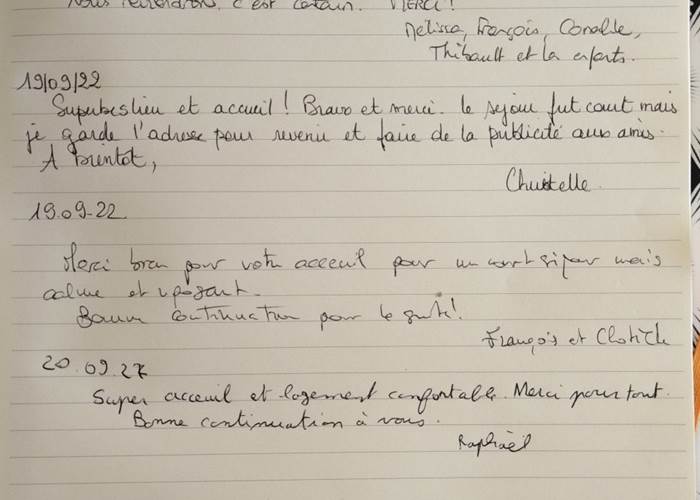 Nous reviendrons, c'est certain. MERCI!
Melissa, François, Coralie,
Thibault et les enfants.
19/09/22
Superbes lieu et accueil! Bravo et merci. Le séjour fut court mais
je garde l'adresse pour revenir et faire de la publicité aux amis.
A bientôt,
Christelle
19.09.22
Merci bien pour votre acceuil pour un court séjour mais
calme et reposant.
Bonne continuation pour la suite!
François et Clotilde
20.09.22
Super acceuil et logement confortable. Merci pour tout.
Bonne continuation à vous.
Raphaël